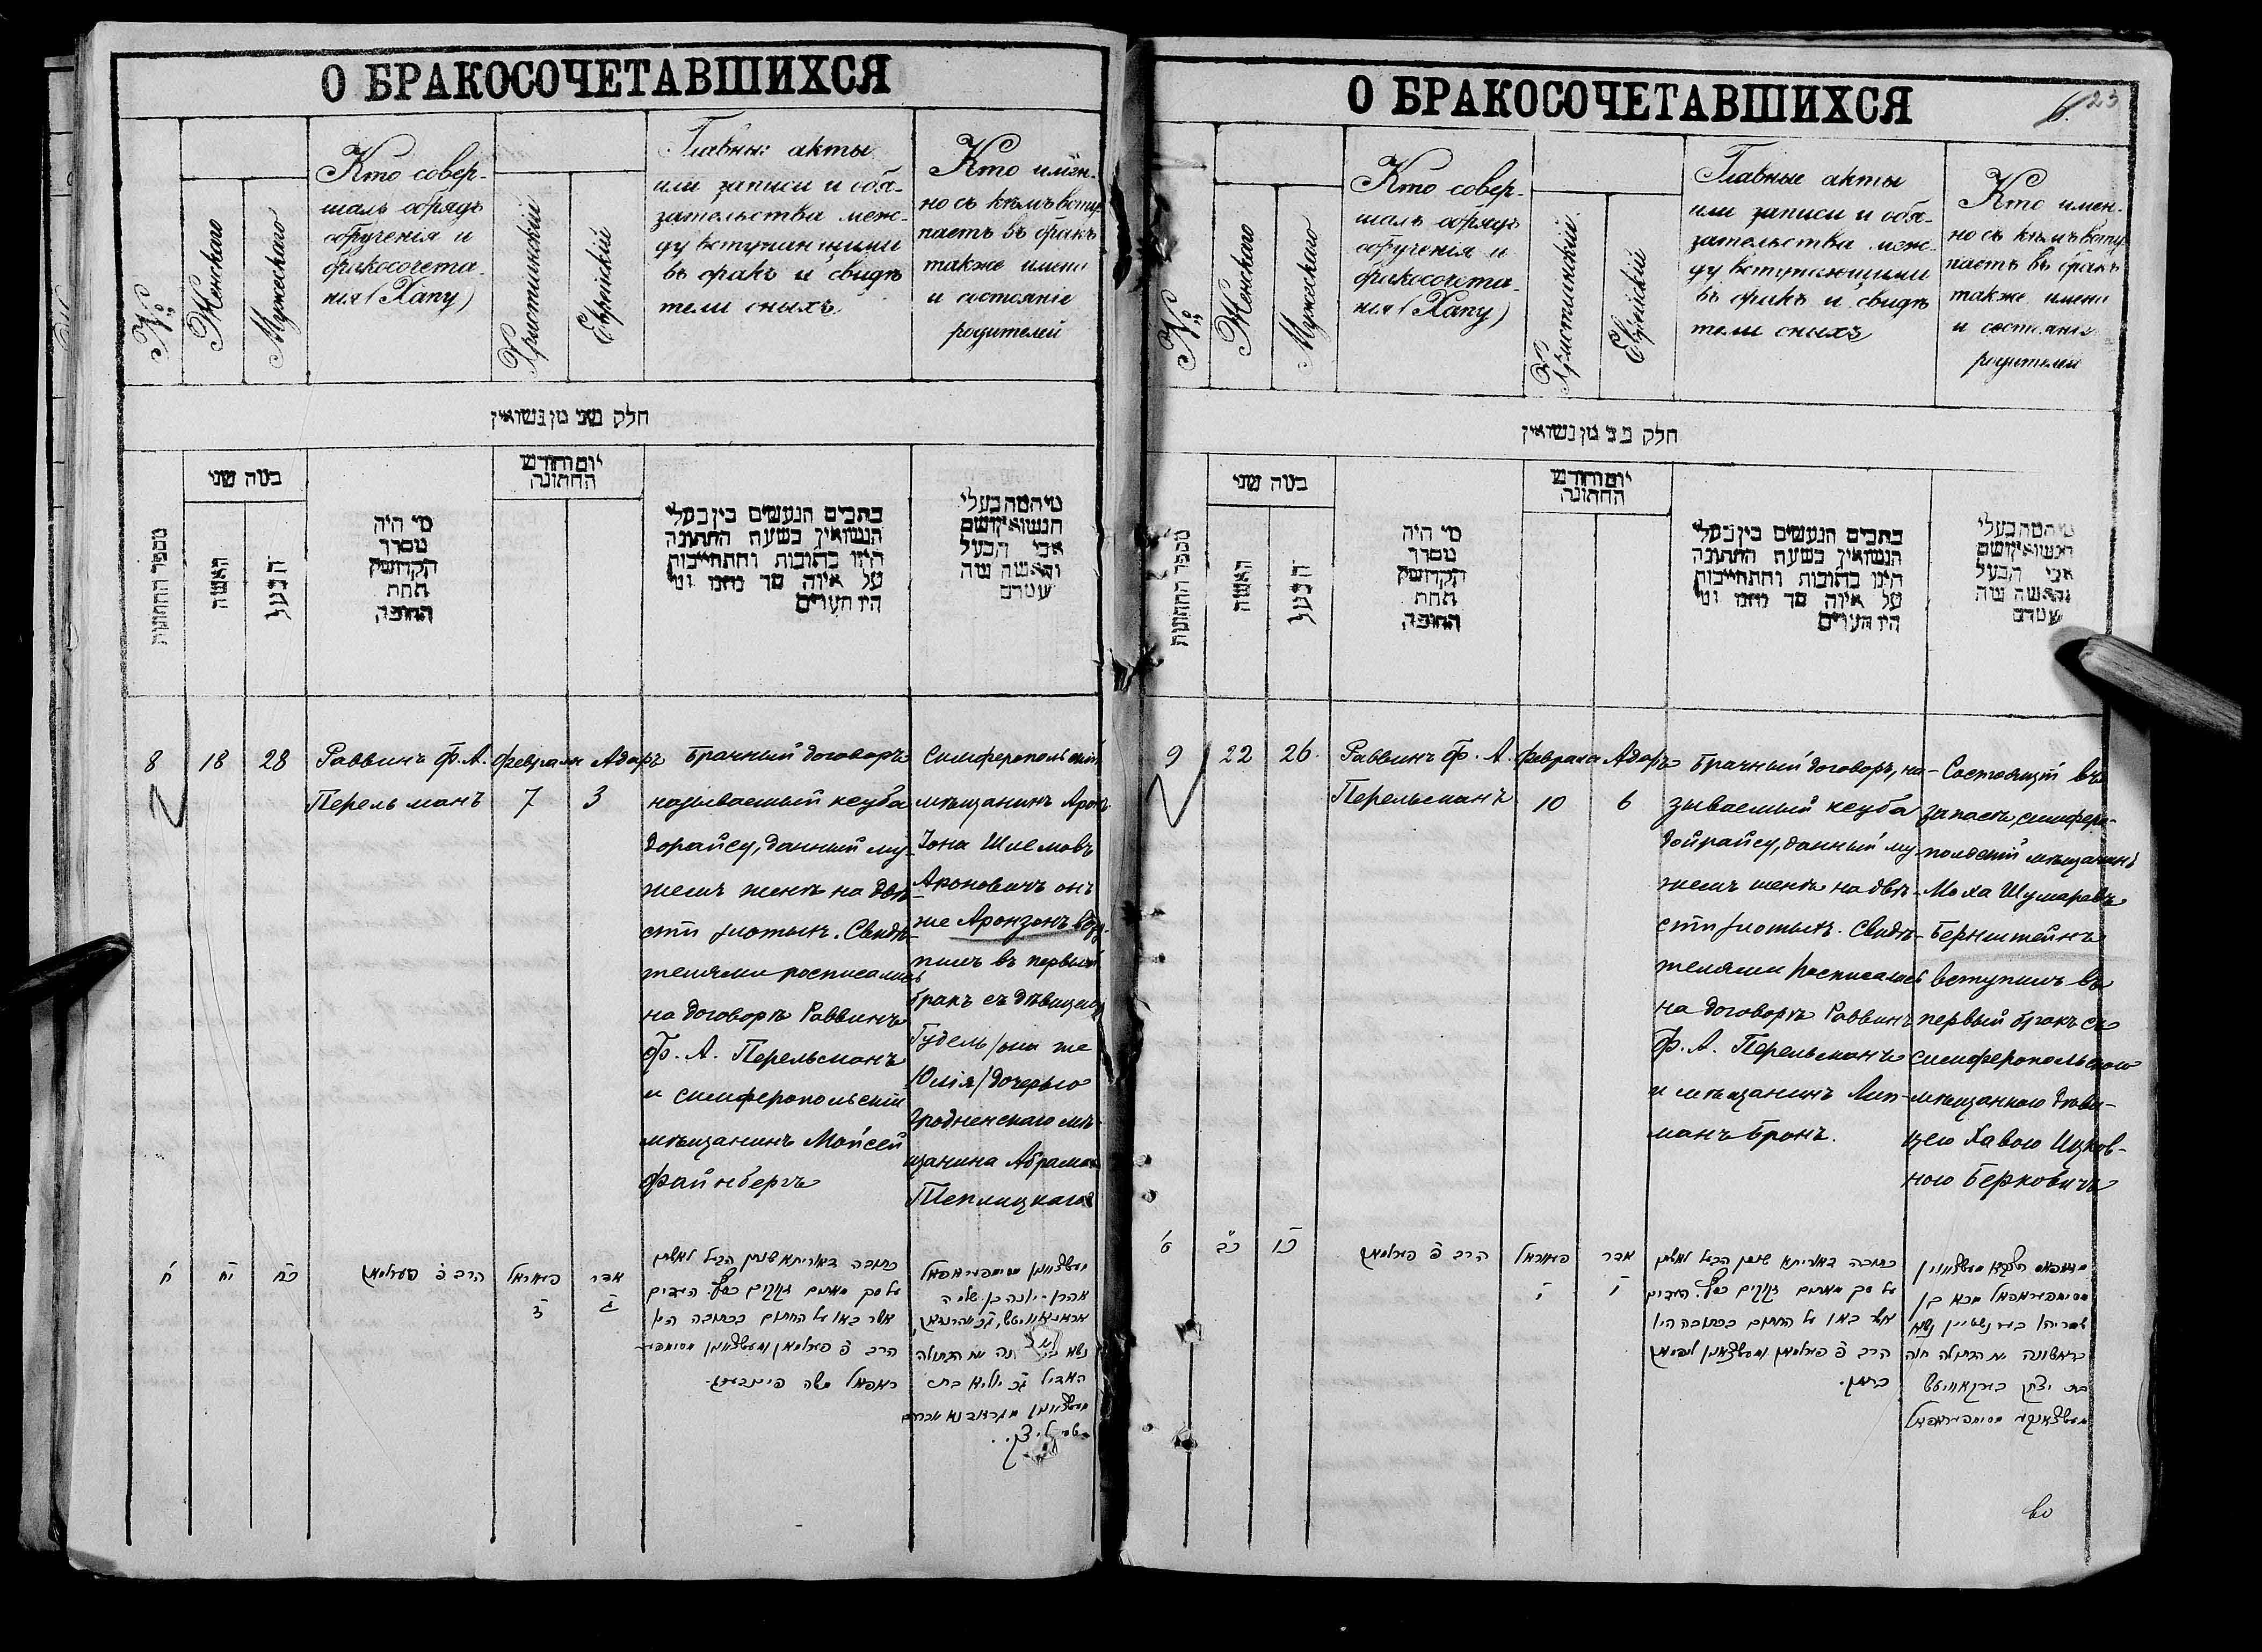 О БРАКОСОЧЕТАВШИХСЯ
№
Женскаго
Мужескаго
Кто совер-
шалъ обрядъ
обрученія и
бракосочета-
нія (Хапу)
Христіанскій
Еврейскій
Главны: акты
или записи и обя-
зательства меж-
ду вступающими
въ бракъ и свидѣ
тели оныхъ
Кто имен-
но съ кѣмъ всту-
паетъ въ бракъ
также имена
и состояніе
родителей
חלק שני מן נשואין
מספר החתונות
כמה שני
האשה
הבעל
מי היה
מסדר
הקדושין
תחת
החופה
יום וחודש
החתונה
כתבים הנעשים בין בעלי
הנשואין בשעת החתונה
היינו כתובות והתחייבות
על איזה סך נתנו ומי
היו העדים
מי המה בעלי
הנשואין ושם
אבי הבעל
והאשה
8
18
28
Раввинъ Ф. А.
Перельманъ
Февраля
7
Адаръ
3
Брачный договоръ
называемый кеуба
дорайсу, данный му-
жемъ женѣ на двѣ-
сти злотыхъ. Свидѣ-
телями росписались
на договорѣ Раввинъ
Ф. А. Перельманъ
и симферопольскій
мѣщанинъ Мойсей
Файнбергъ
Симферопольскій
мѣщанинъ Аронъ
Іона Шлемовъ
Ароновичъ онъ
же Аронзонъ всту-
пилъ въ первый
бракъ съ дѣвицею
Гудель /она же
Юлія/ дочерью
Гродненскаго мѣ-
щанина Абрама
Теплицкаго
ח
יח
כח
הרב פ׳ פערלמאן
פעווראל
ז
אדר
ג
כתובה דאורייתא שנתן הבעל לאשתו
על סך מאתים זקוקים כסף. העדים
אשר באו על החתום בכתובה היו
הרב פ׳ פערלמאן
משה פיינבערג.
אהרן יונה בן שלמה
О БРАКОСОЧЕТАВШИХСЯ
23
№
Женскаго
Мужескаго
Кто совер-
шалъ обрядъ
обрученія и
бракосочета-
нія (Хапу)
Христіанскій
Еврейскій
Главные акты
или записи и обя-
зательства меж-
ду вступающими
въ бракъ и свидѣ
тели оныхъ
Кто имен-
но съ кѣмъ всту-
паетъ въ бракъ
также имена
и состояніе
родителей
חלק שני מן נשואין
מספר החתונות
כמה שני
האשה
הבעל
מי היה
מסדר
הקדושין
תחת
החופה
יום וחודש
החתונה
כתבים הנעשים בין בעלי
הנשואין בשעת החתונה
היינו כתובות והתחייבות
על איזה סך נתנו ומי
היו העדים
מי המה בעלי
הנשואין ושם
אבי הבעל
והאשה
9
22
26
Раввинъ Ф. А.
Перельманъ
Февраля
10
Адаръ
6
Брачный договоръ, на-
зываемый кеуба
дойрайсу, данный му-
жемъ женѣ на двѣ-
сти злотыхъ. Свидѣ-
телями росписались
на договорѣ Раввинъ
Ф. А. Перельманъ
и мѣщанинъ Лип-
манъ Бронъ.
Состоящій въ
запасѣ, симферо-
польскій мѣщанинъ
Моха Шумаровъ
Бернштейнъ
вступилъ въ
первый бракъ съ
симферопольскою
мѣщанкою дѣви-
цею Хавою Ицков-
ною Берковичъ
ט
כב
כו
הרב פ׳ פערלמאן
פעווראל
י
אדר
ו
כתובה דאורייתא שנתן הבעל לאשתו
על סך מאתים זקוקים כסף. העדים
אשר באו על החתום בכתובה היו
הרב פ׳ פערלמאן
בערנשטיין נשא
בראשונה את הבתולה חוה
בת יצחק בערקאוויטש